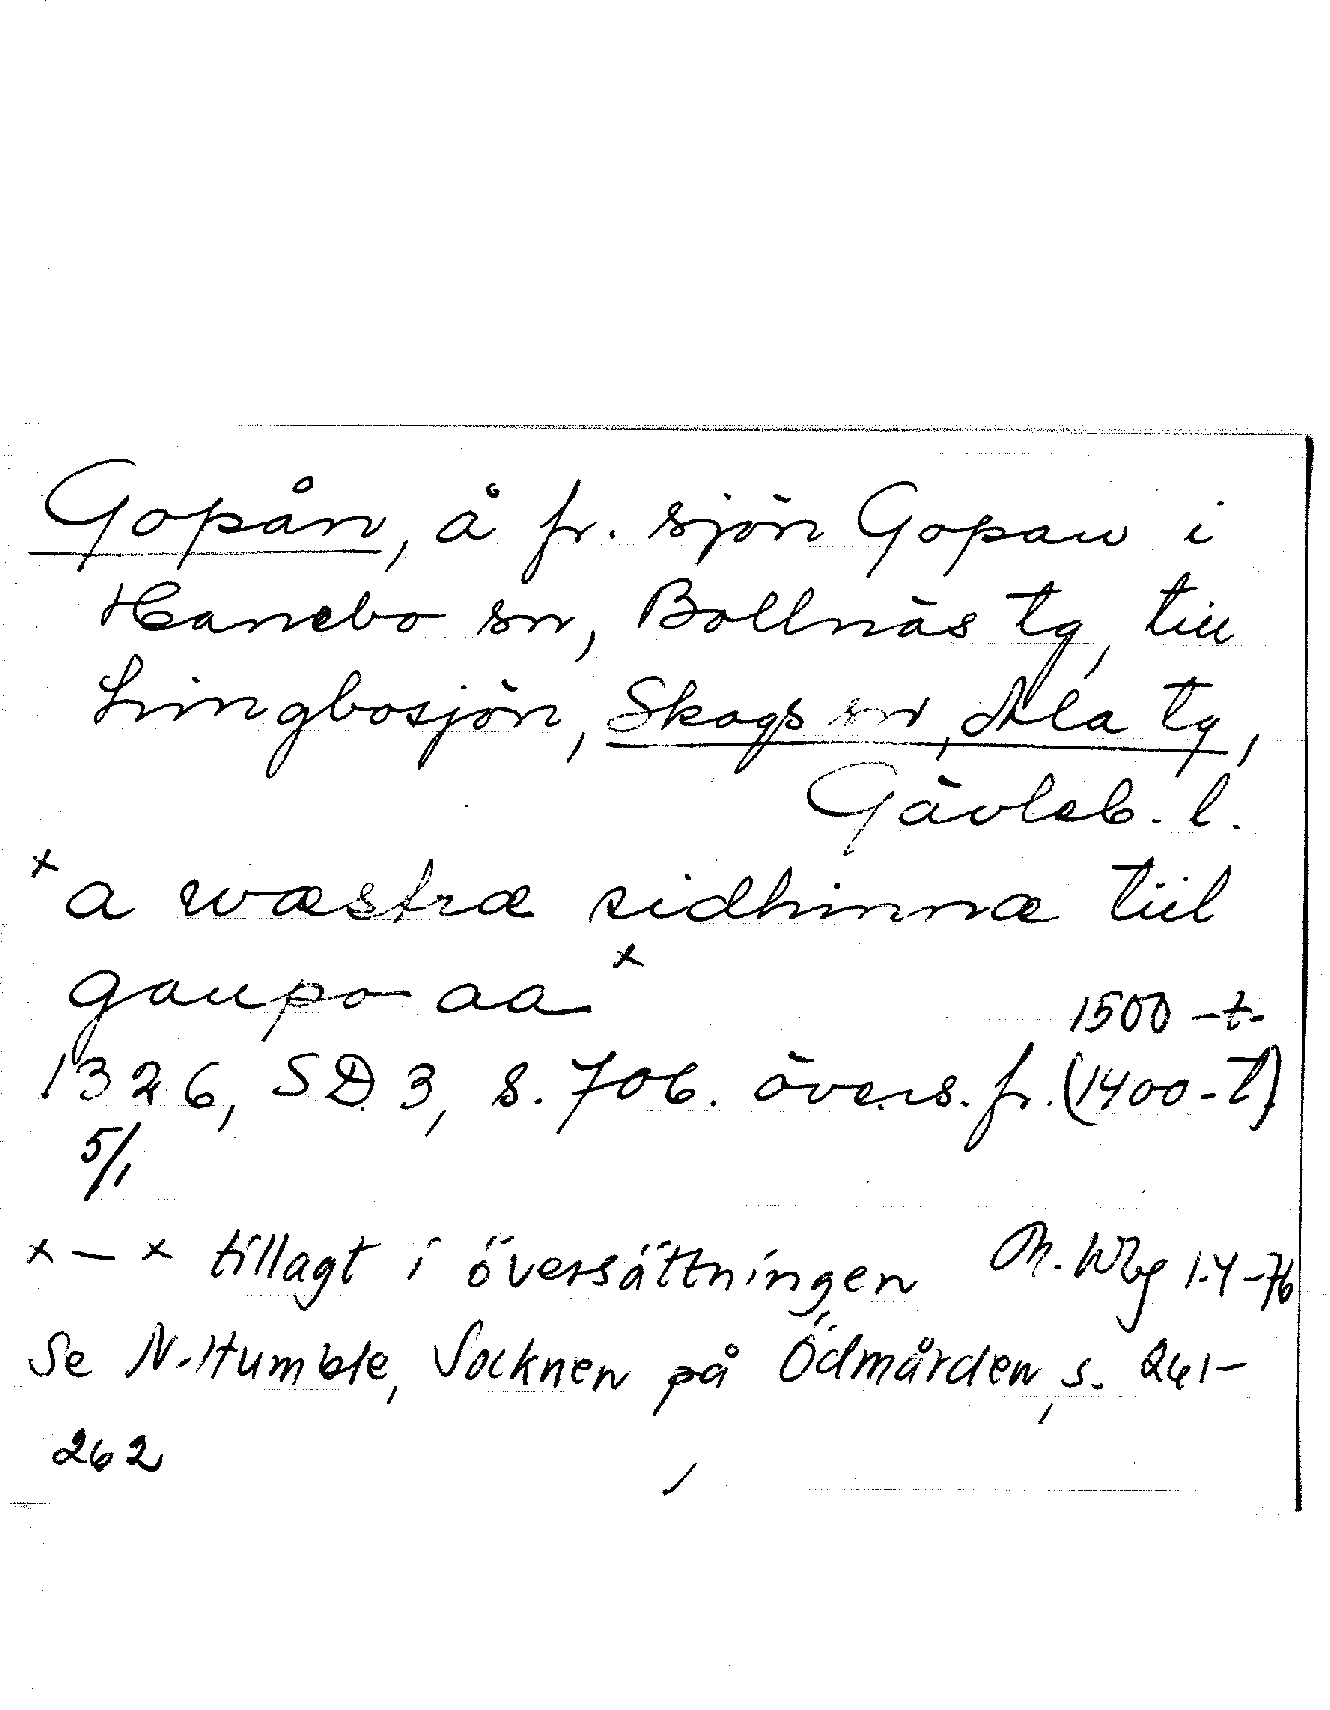 Gopån, å fr. sjön Gopaw i
Hanebo sn, Bollnäs tg, till
Lingbosjön, Skogs sn, Ala tg,
Gävleb. l.
x a wæstræ sidhinnæ tiil
gaupo aa x
1500-t.
1326, SD 3, s. 706. övers. fr. (1400-t)
5/1
x – x tillagt i översättningen M. Wbg 1.4-76
Se N. Humble, Socknen på Ödmården, s. 261-
262